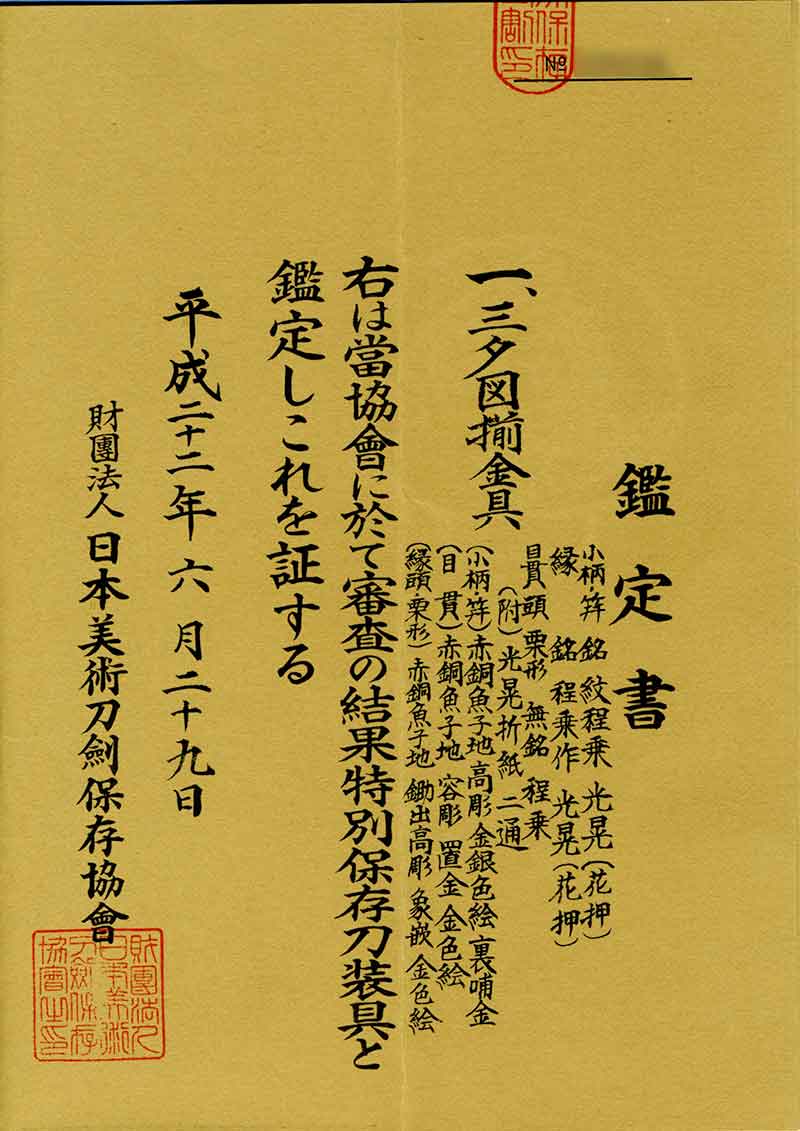 No
保存
割印
鑑定書
一、三夕図揃金具
小柄・笄 銘 紋程乗 光晃(花押)
縁 銘 程乗作 光晃(花押)
目貫 頭 栗形 無銘 程乗
(附)光晃折紙 二通
(小柄・笄)赤銅魚子地 高彫 金銀色絵 裏哺金
(目貫)赤銅魚子地 容彫 置金 金色絵
(縁頭・栗形)赤銅魚子地 鋤出高彫 象嵌 金色絵
右は當協會に於て審査の結果特別保存刀装具と
鑑定しこれを証する
平成二十二年六月二十九日
財團法人 日本美術刀劍保存協會
財團法人
日本美術
刀劍保存
協會之印